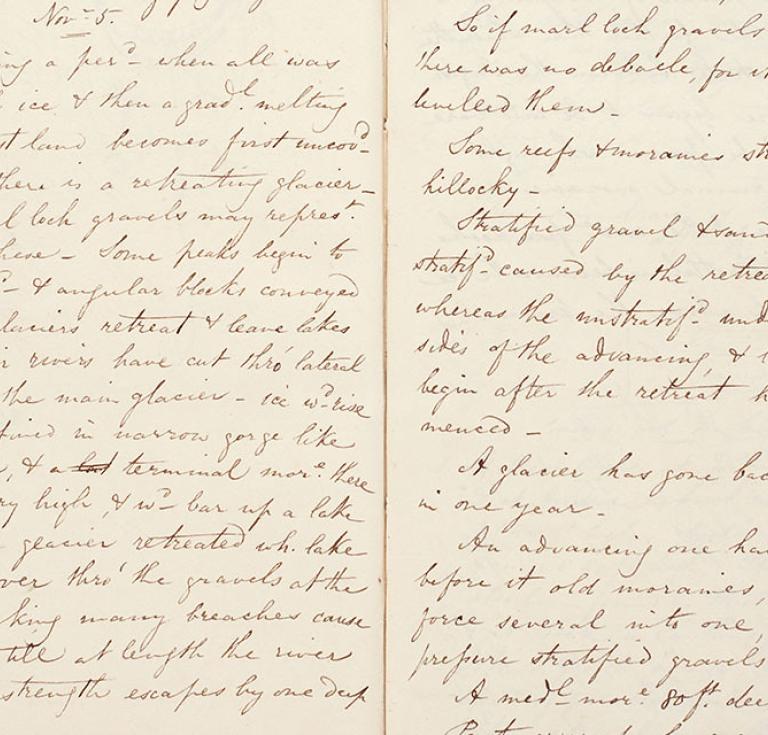 Nov.r 5.
ing a per.d - when all was
ice & then a grad.l melting
st land becomes first uncov.d-
there is a retreating glacier -
l loch gravels may repres.t
these - Some peaks begin to
d- & angular blocks conveyed
laciers retreat & leave lakes
r rivers have cut thro' lateral
the main glacier - ice w.d rise
fined in narrow gorge like
, & a terminal mor.e there
ry high, & w.d bar up a lake
glacier retreated wh. lake
over thro' the gravels at the
king many breaches cause
till at length the river
strength escapes by one deep
So if marl loch gravels
there was no debacle, for it
levelled them -
Some reefs & moraines st
hillocky -
Stratified gravel & san
stratif.d caused by the retre
whereas the unstratif.d und
sides of the advancing, &
begin after the retreat h
menced -
A glacier has gone bac
in one year -
An advancing one ha
before it old moraines,
force several into one,
pressure stratified gravels
A med.l mor.e 80 ft. dee